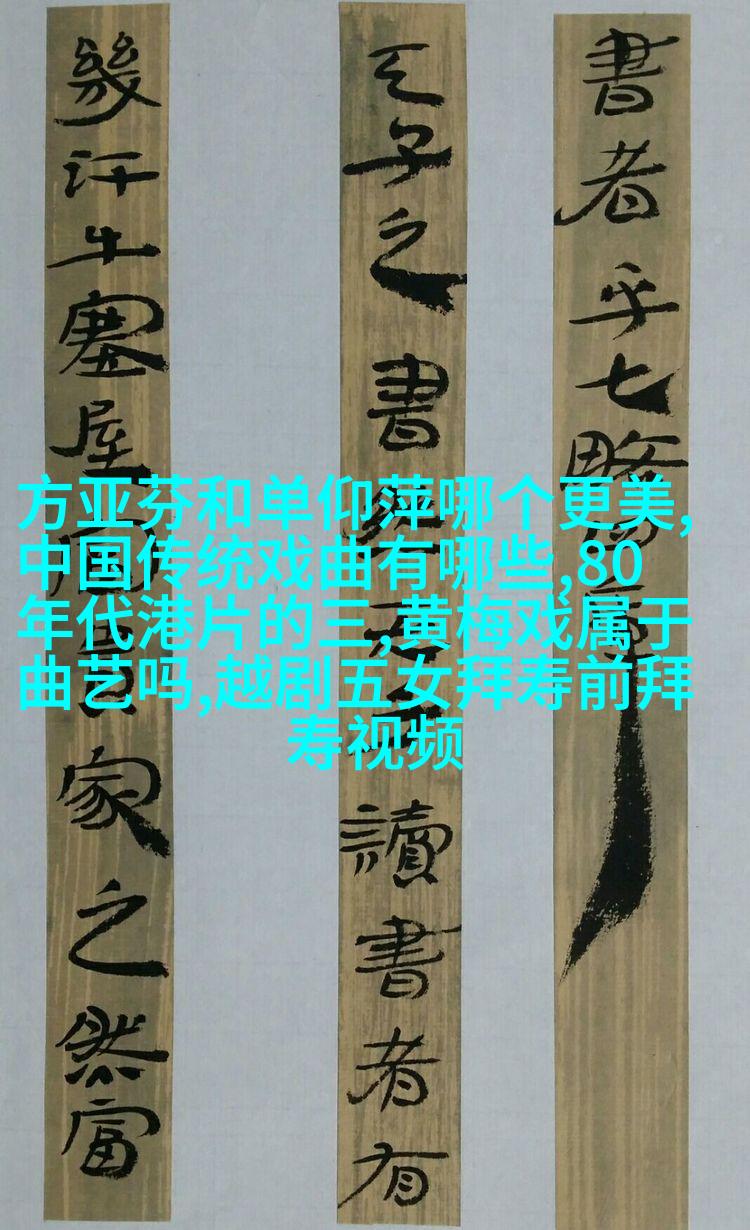 書者乎七略
天子之書然天子讀書者有
幾汗牛塞屋富貴家之然富
方亚芬和单仰萍哪个更美,
中国传统戏曲有哪些,80
年代港片的三,黄梅戏属于
曲艺吗,越剧五女拜寿前拜
寿视频